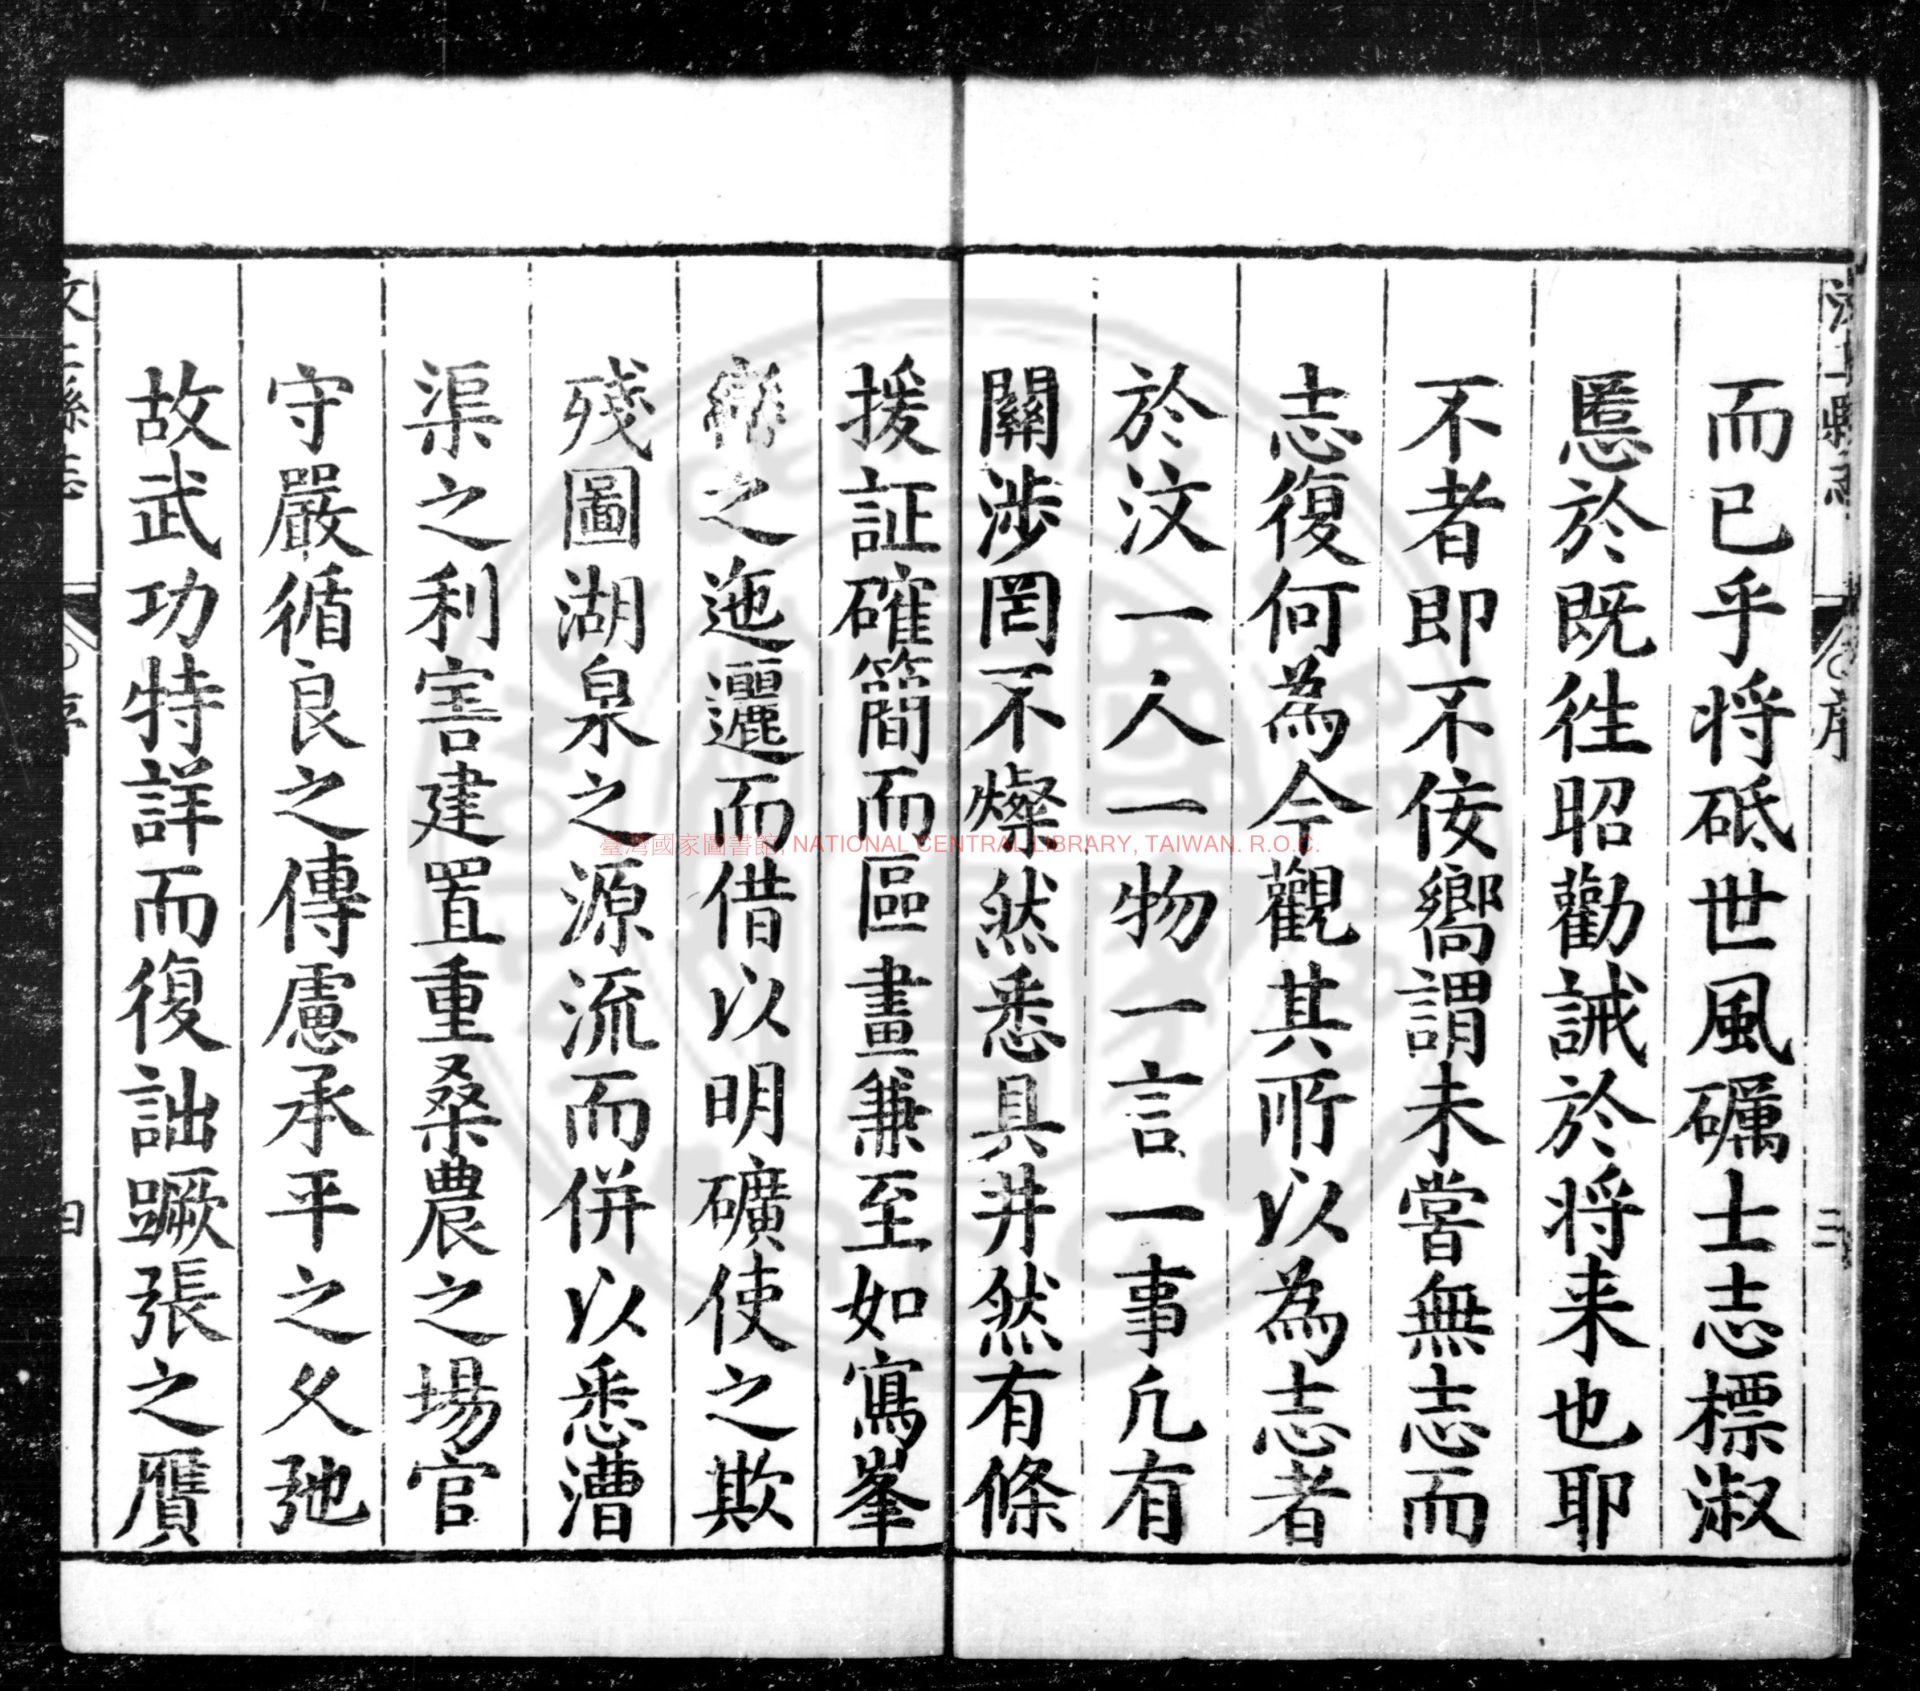 而已乎将砥世風礪士志標淑
慝於既徃昭勸誡於将来也耶
不者即不侫嚮謂未嘗無志而
志復何為今觀其所以為志者
於汶一人一物一言一事凢有
關涉罔不燦然悉具井然有條
援証確簡而區畫兼至如寫峯
之迤邐而借以明礦使之欺
殘圖湖泉之源流而併以悉漕
渠之利害建置重桑農之場官
守嚴循良之傳慮承平之乆弛
故武功特詳而復詘蹶張之贋
汶上縣志
序
三
汶上縣志
序
四
臺灣國家圖書館, NATIONAL CENTRAL LIBRARY, TAIWAN. R.O.C.